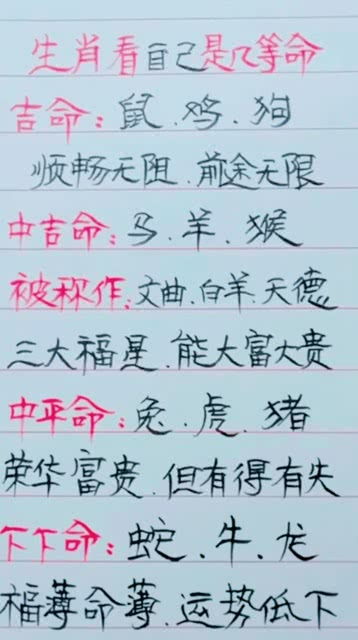 生肖看自己是几等命
吉命：鼠、鸡、狗
顺畅无阻、前途无限
中吉命：马、羊、猴
被称作：文曲、白羊、天德
三大福星、能大富大贵
中平命：兔、虎、猪
荣华富贵、但有得有失
下下命：蛇、牛、龙
福薄命薄、运势低下